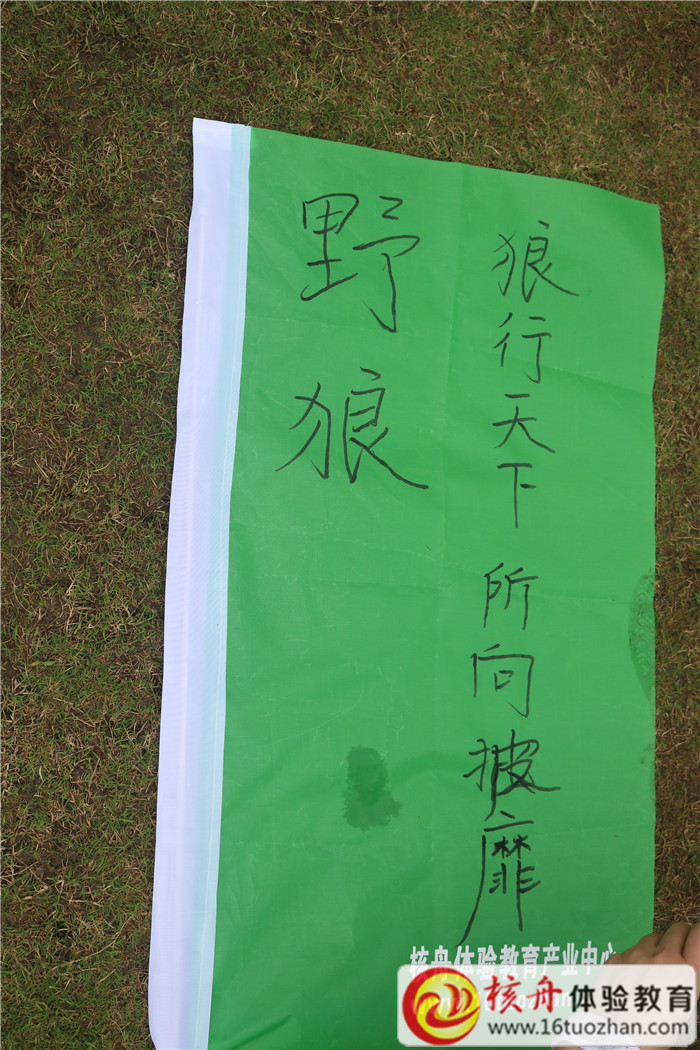 野狼
狼行天下 所向披靡
核舟体验教育产业中心
核舟体验教育
www.16tuozhan.com